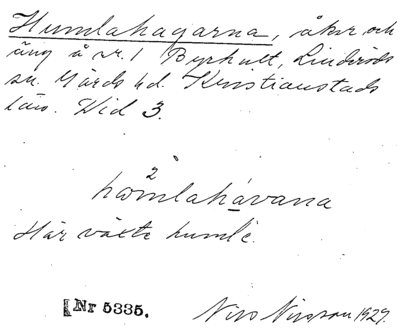 Humlahagarna, åker och
äng å nr. 1 Byrhult, Linderöds
sn. Gärds hd. Kristianstads
län. Vid 3.
2
hωmlahávana
Här växte humle.
[Nr 5335.
Nils Nilsson 1929.